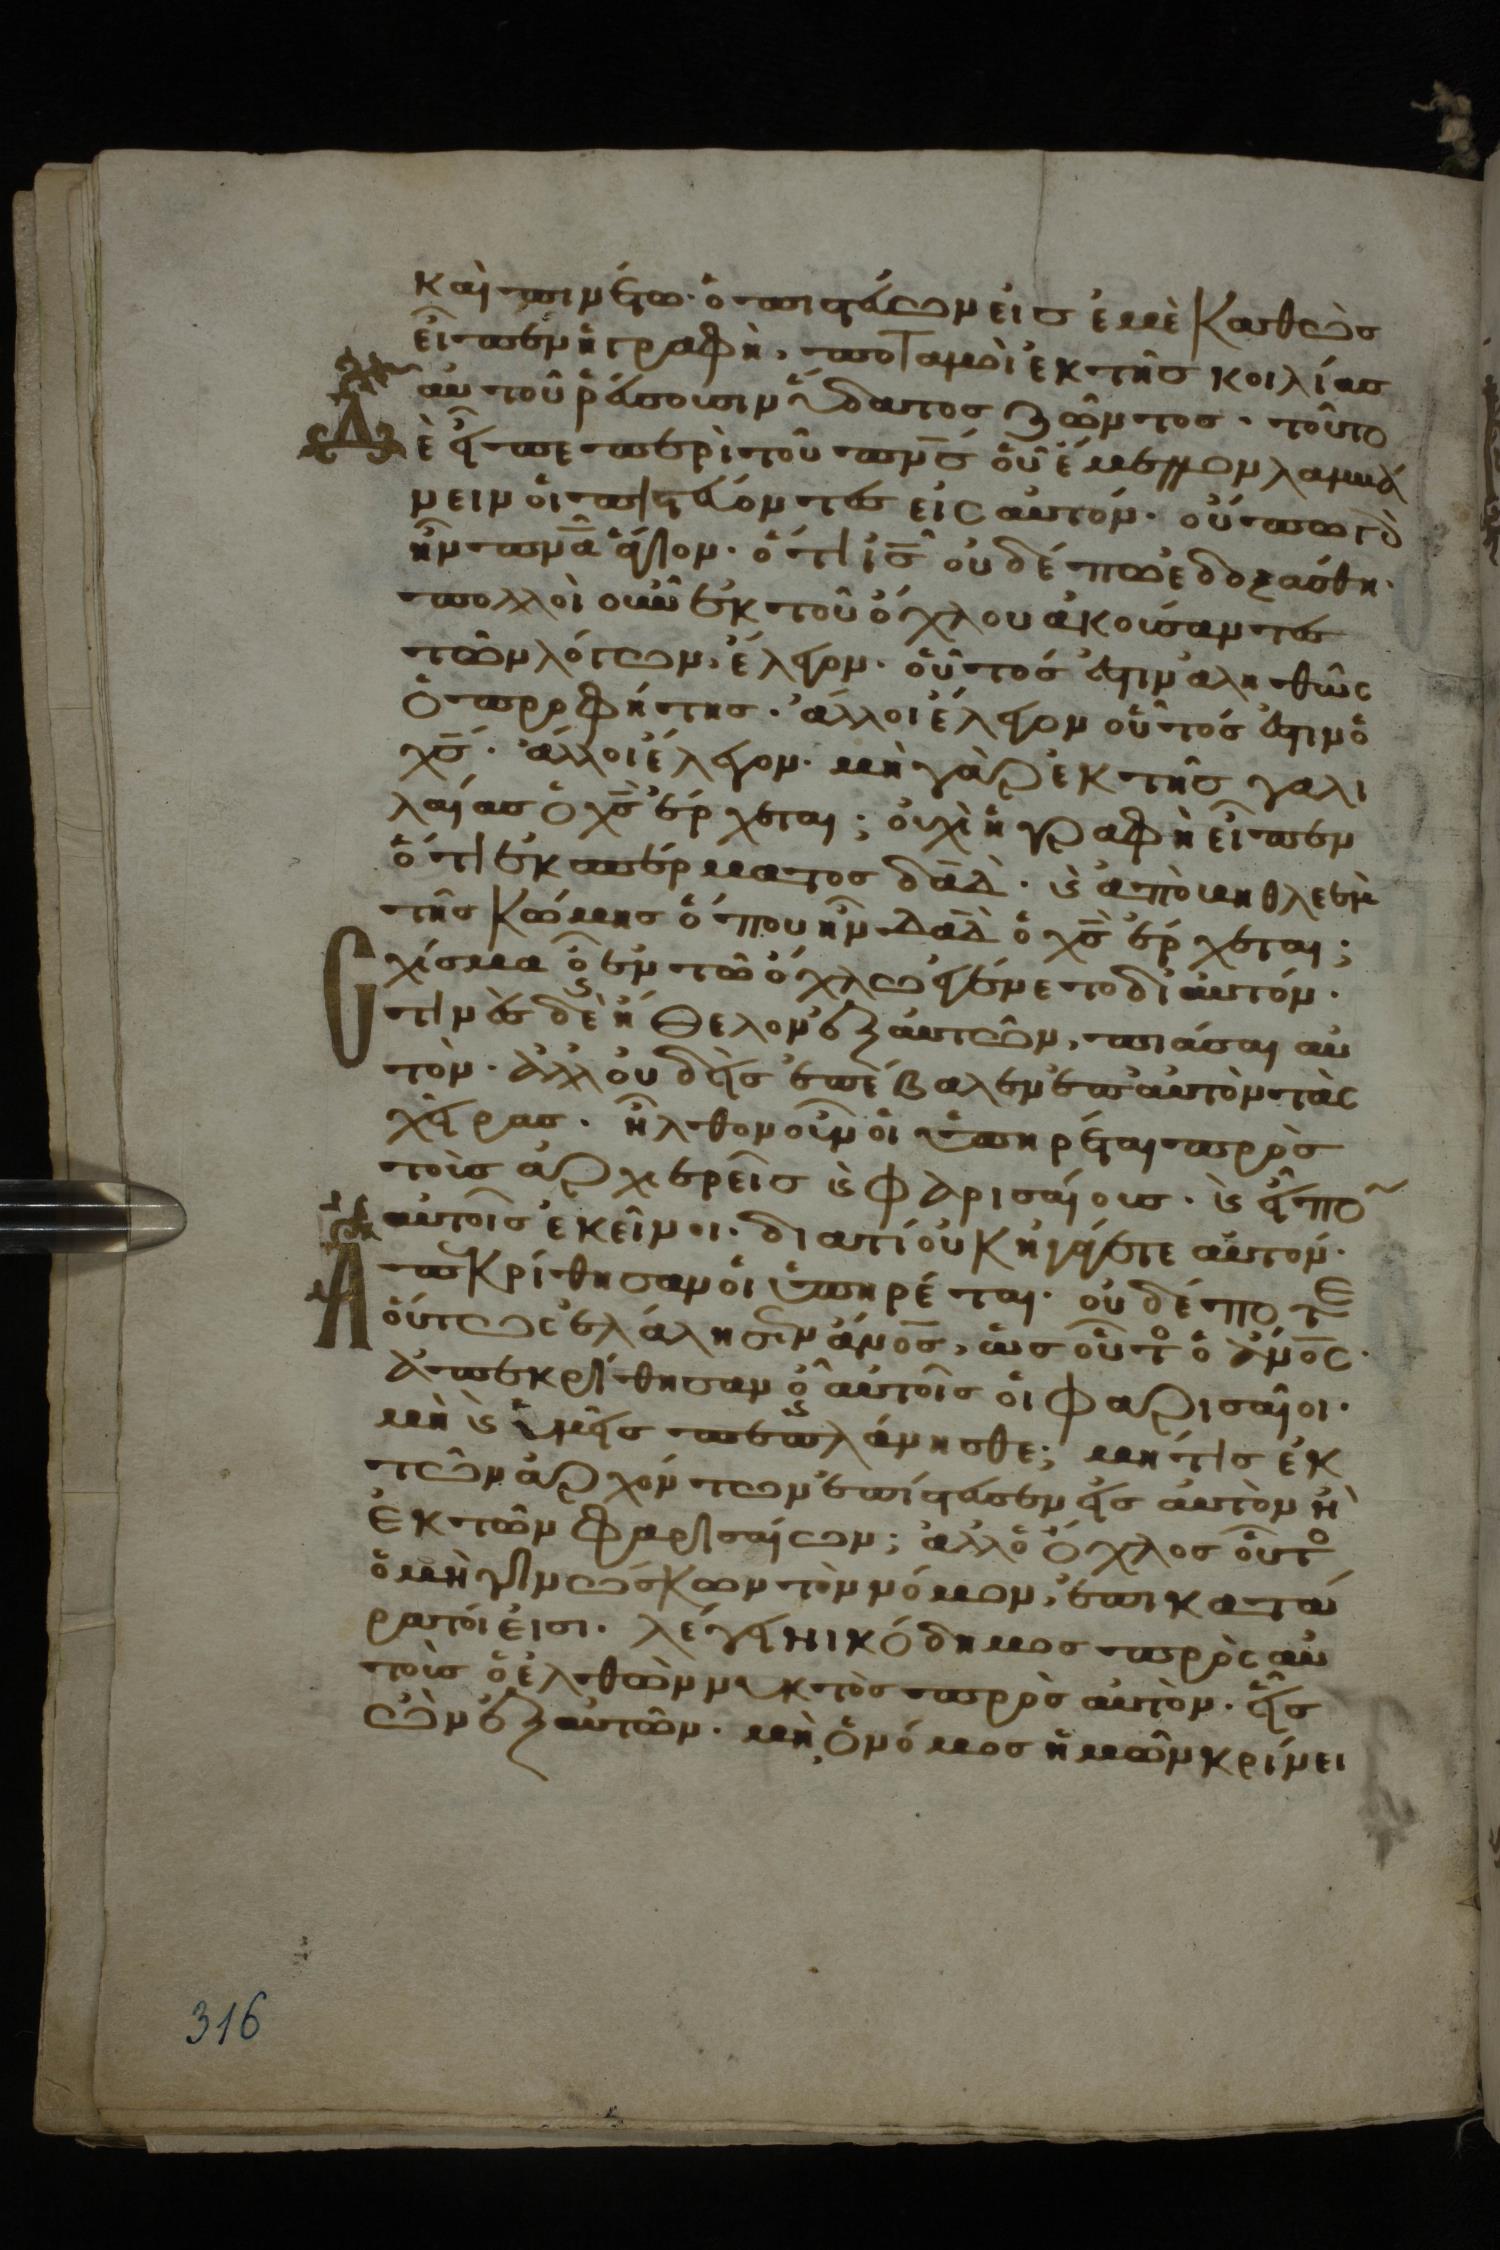 καὶ πινέτω· ὁ πιστεύων εἰς ἐμὲ Καθὼς
εἶπεν ἡ γραφὴ, ποταμοὶ ἐκ τῆς κοιλίας
αὐτοῦ ῥεύσουσιν ὕδατος ζῶντος· τοῦτο
Δὲ εἶπε περὶ τοῦ πν̅ς οὗ ἔμελλον λαμβά
νειν οἱ πιστεύοντες εἰς αὐτόν· οὔπω γὰρ
ἦν πν̅α ἅγιον· ὅτι ις̅ οὐδέπω ἐδοξάσθη·
πολλοὶ οὖν ἐκ τοῦ ὄχλου ἀκούσαντες
τῶν λόγων, ἔλεγον· οὗτός ἐστιν ἀληθῶς
ὁ προφήτης· ἄλλοι ἔλεγον οὗτός ἐστιν ὁ
χς̅· ἄλλοι ἔλεγον· μὴ γὰρ ἐκ τῆς γαλι
λαίας ὁ χς̅ ἔρχεται; οὐχὶ ἡ γραφὴ εἶπεν
ὅτι ἐκ σπέρματος δα̅δ· ϗ ἀπὸ βηθλεὲμ
τῆς Κώμης ὅπου ἦν δα̅δ ὁ χς̅ ἔρχεται;
Σχίσμα οὖν ἐν τῷ ὄχλῳ ἐγένετο δι αὐτόν·
τινὲς δὲ ἤθελον ἐξ αὐτῶν, πιάσαι αὐ
τὸν· ἀλλ οὐδεὶς ἐπέβαλεν ἐπ αὐτὸν τὰς
χεῖρας· ἦλθον οὖν οἱ ὑπηρέται πρὸς
τοὺς ἀρχιερεῖς ϗ φαρισαίους· ϗ εἶπο͂
αὐτοῖς ἐκεῖνοι· διατί οὐκ ἠγάγετε αὐτόν·
Ἀπεκρίθησαν οἱ ὑπηρέται· οὐδέποτε
οὕτως ἐλάλησεν ἀν̅ος, ὡς οὗτος ὁ ἀν̅ος·
ἀπεκρίθησαν οὖν αὐτοῖς οἱ φαρισαῖοι·
μὴ ϗ ὑμεῖς πεπλάνησθε; μή τις ἐκ
τῶν ἀρχόντων ἐπίστευσεν εἰς αὐτὸν ἢ
ἐκ τῶν φαρισαίων; ἀλλ ὁ ὄχλος οὗτος
ὁ μὴ γινώσκων τὸν νόμον, ἐπικατά
ρατοί εἰσι· λέγει νικόδημος πρὸς αὐ
τοὺς ὁ ἐλθὼν νυκτὸς πρὸς αὐτὸν· εἷς
ὢν ἐξ αὐτῶν· μὴ ὁ νόμος ἡμῶν κρίνει
316